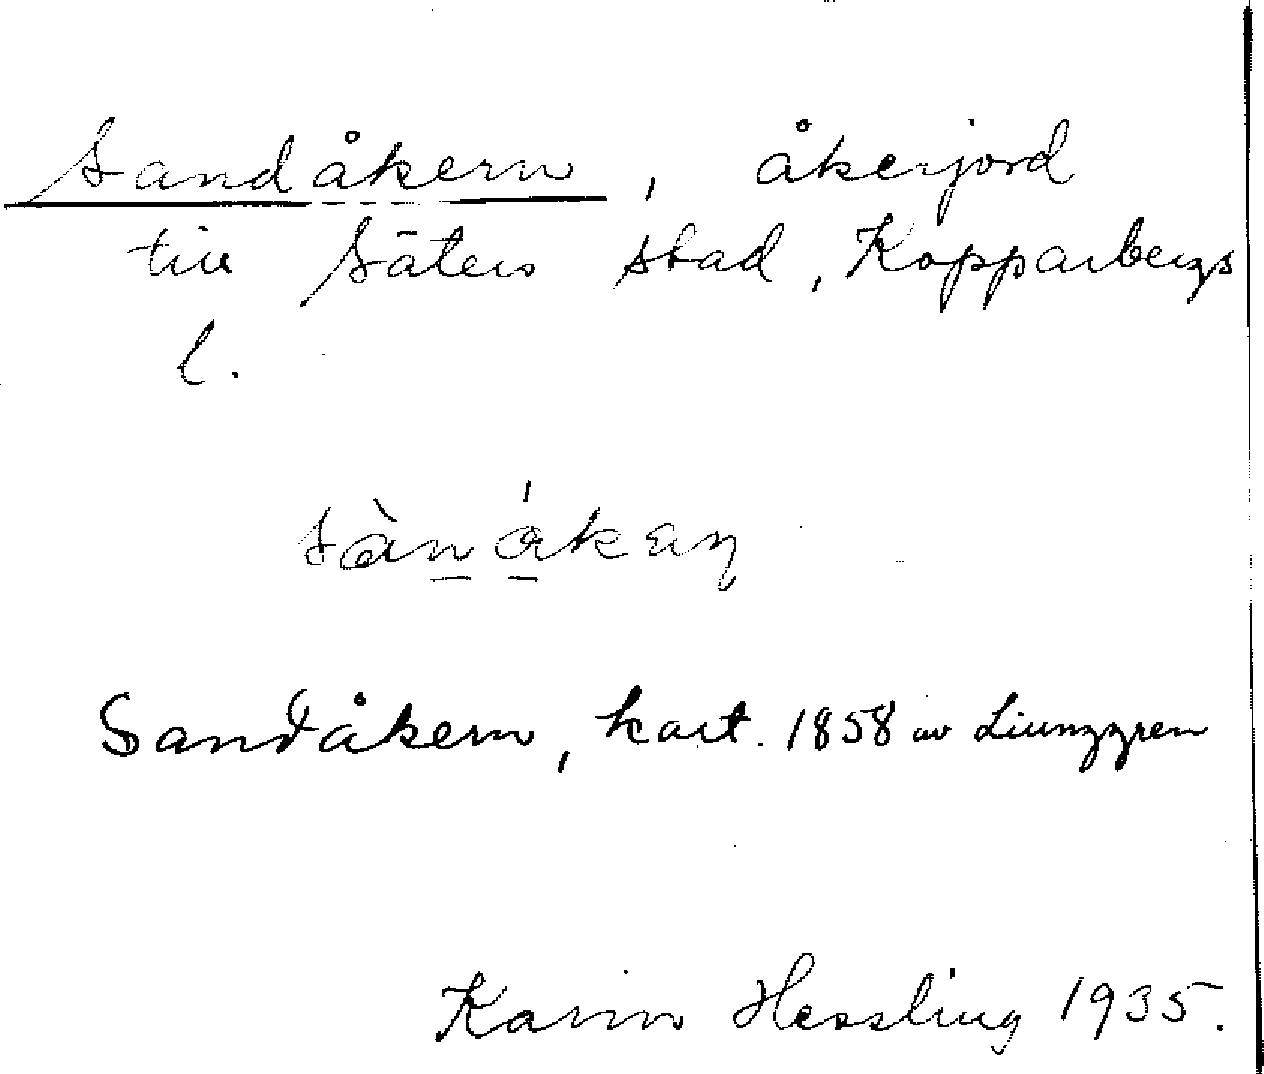 Sandåkern, åkerjord
till Säters stad, Kopparbergs
l.
Sandåkern, kart. 1858 av Liunggren
Karin Hessling 1935.